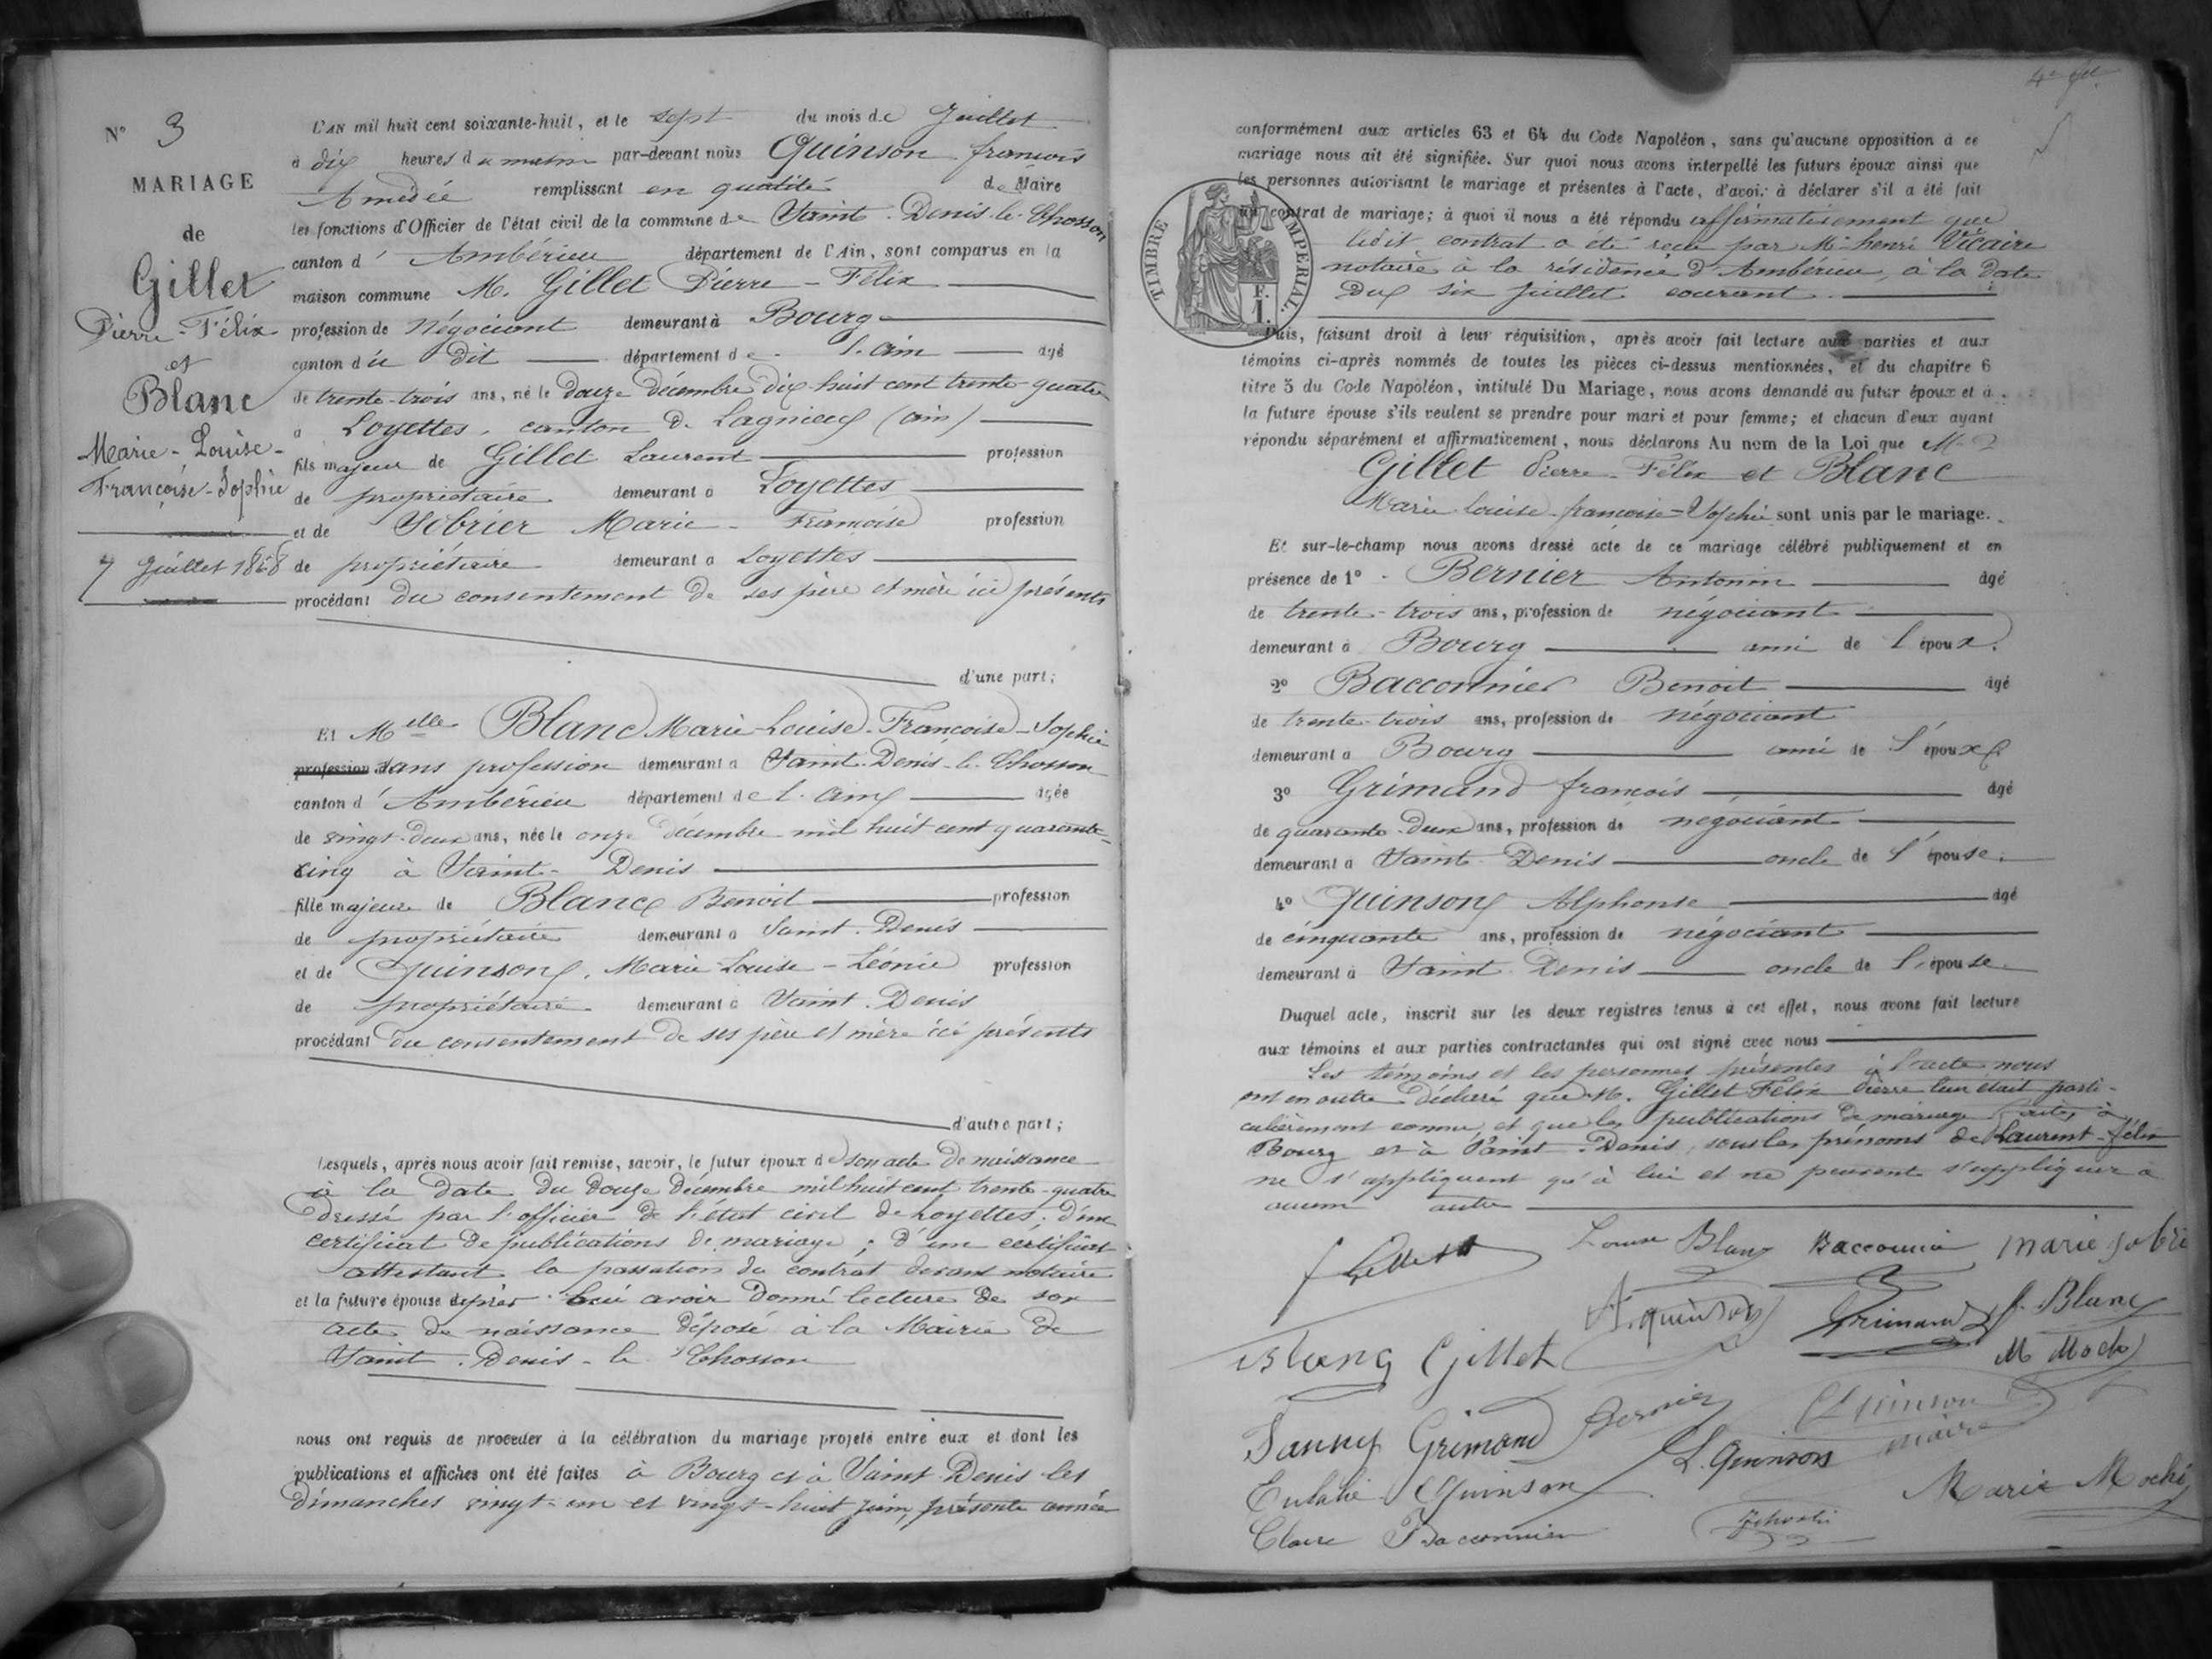 N° 3
MARIAGE
de
Gillet
Pierre-Félix
et
Blanc
Marie-Louise-
Françoise-Sophie
7 Juillet 1868
L'AN mil huit cent soixante-huit, et le sept du mois de Juillet
à dix heures du matin par-devant nous Quinson françois
Amédée remplissant en qualité de Maire
les fonctions d'Officier de l'état civil de la commune de Saint-Denis-le-Chosson
canton d'Ambérieu département de l'Ain, sont comparus en la
maison commune M. Gillet Pierre-Félix
profession de Négociant demeurant à Bourg
canton du dit département de l'ain âgé
de trente-trois ans, né le douze décembre dix huit cent trente-quatre
à Loyettes, canton de Lagnieu (ain)
fils majeur de Gillet Laurent profession
de propriétaire demeurant à Loyettes
et de Sobrier Marie-Françoise profession
de propriétaire demeurant à Loyettes
procédant du consentement de ses père et mère ici présents
d'une part;
Et Melle Blanc Marie-Louise-Françoise-Sophie
profession sans profession demeurant à Saint-Denis-le-Chosson
canton d'Ambérieu département de l'ain âgée
de vingt-deux ans, née le onze décembre mil huit cent quarante-
cinq à Saint-Denis
fille majeure de Blanc Benoit profession
de propriétaire demeurant à Saint-Denis
et de Quinson, Marie-Louise-Léonie profession
de propriétaire demeurant à Saint-Denis
procédant du consentement de ses père et mère ici présents
d'autre part;
Lesquels, après nous avoir fait remise, savoir, le futur époux de son acte de naissance
à la date du douze décembre mil huit cent trente-quatre
dressé par l'officier de l'état civil de Loyettes; d'un
certificat de publications de mariage; d'un certificat
attestant la passation du contrat devant notaire
et la future épouse après lui avoir donné lecture de son
acte de naissance déposé à la Mairie de
Saint-Denis-le-Chosson
nous ont requis de procéder à la célébration du mariage projeté entre eux et dont les
publications et affiches ont été faites à Bourg et à Saint-Denis les
dimanches vingt-un et vingt-huit juin, présente année
conformément aux articles 63 et 64 du Code Napoléon, sans qu'aucune opposition à ce
mariage nous ait été signifiée. Sur quoi nous avons interpellé les futurs époux ainsi que
les personnes autorisant le mariage et présentes à l'acte, d'avoir à déclarer s'il a été fait
un contrat de mariage; à quoi il nous a été répondu affirmativement que
ledit contrat a été reçu par Me henri Vicaire
notaire à la résidence d'Ambérieu, à la date
du six juillet courant
TIMBRE IMPERIAL.
F.
1.
Puis, faisant droit à leur réquisition, après avoir fait lecture aux parties et aux
témoins ci-après nommés de toutes les pièces ci-dessus mentionnées, et du chapitre 6
titre 5 du Code Napoléon, intitulé Du Mariage, nous avons demandé au futur époux et à
la future épouse s'ils veulent se prendre pour mari et pour femme; et chacun d'eux ayant
répondu séparément et affirmativement, nous déclarons Au nom de la Loi que M.
Gillet Pierre-Félix et Blanc
Marie-louise-françoise-Sophie sont unis par le mariage.
Et sur-le-champ nous avons dressé acte de ce mariage célébré publiquement et en
présence de 1° Bernier Antonin âgé
de trente-trois ans, profession de négociant
demeurant à Bourg ami de l'époux.
2° Bacconnier Benoit âgé
de trente-trois ans, profession de négociant
demeurant à Bourg ami de l'époux
3° Grimand françois âgé
de quarante-deux ans, profession de négociant
demeurant à Saint-Denis oncle de l'épouse.
4° Quinson Alphonse âgé
de cinquante ans, profession de négociant
demeurant à Saint-Denis oncle de l'épouse
Duquel acte, inscrit sur les deux registres tenus à cet effet, nous avons fait lecture
aux témoins et aux parties contractantes qui ont signé avec nous
Les témoins et les personnes présentes à l'acte nous
ont en outre déclaré que M. Gillet Félix Pierre leur était parti-
culièrement connu, et que les publications de mariage faites à
Bourg et à Saint-Denis, sous les prénoms de Laurent-félix
ne s'appliquent qu'à lui et ne peuvent s'appliquer à
aucun autre
f Gillet Louise Blanc Bacconnier marie sobrie
A. quinson Grimand f. Blanc
Blanc Gillet M Moch
Fanny Grimand Bernier Quinson
maire
Eulalie Quinson L. Quinson Marie Moch
Claire Bacconnier